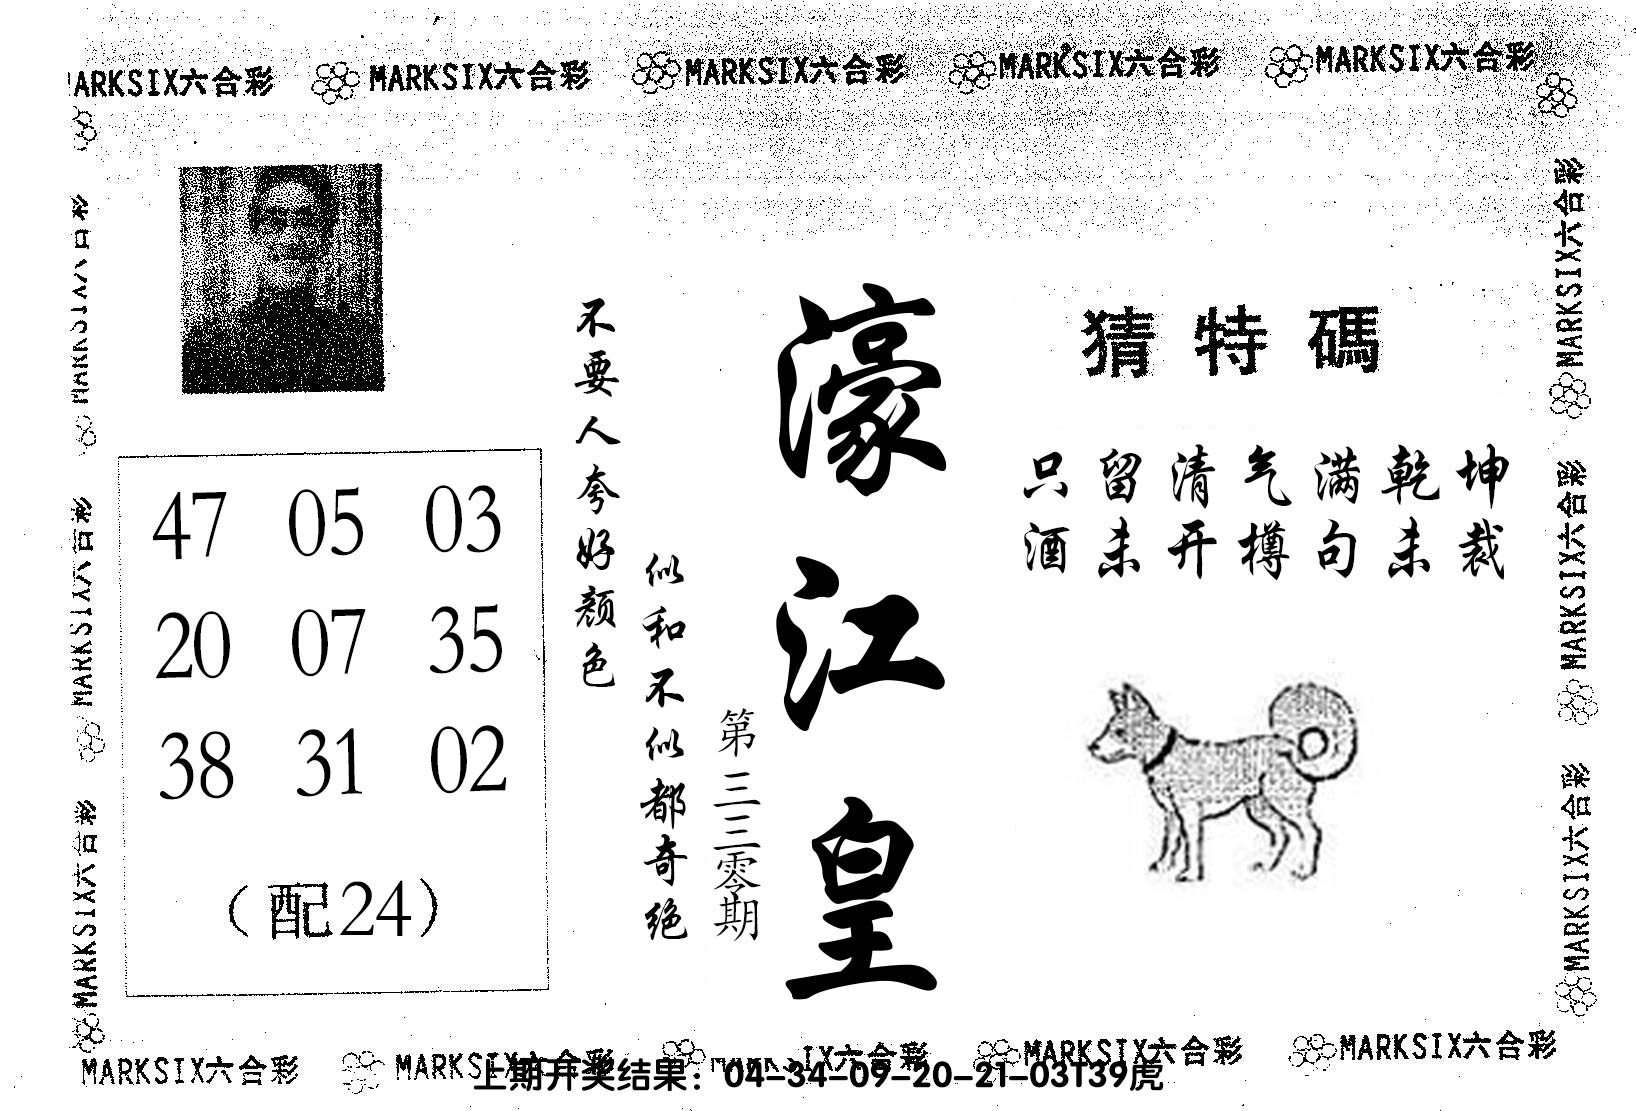 MARKSIX六合彩 MARKSIX六合彩 MARKSIX六合彩 MARKSIX六合彩
ARKSIX六合彩
猜特碼
只留清气满乾坤
酒未开樽句未裁
濠江皇
第三三零期
不要人夸好颜色
似和不似都奇绝
47 05 03
20 07 35
38 31 02
（配24）
MARKSIX六合彩
MARKSIX六合彩
MARKSIX六合彩
MARKSIX六合彩
MARKSIX六合彩
MARKSIX六合彩
MARKSIX六合彩 MARKSIX六合彩 IX六合彩 MARKSIX六合彩 MARKSIX六合彩
上期开奖结果：04-34-09-20-21-03T39虎